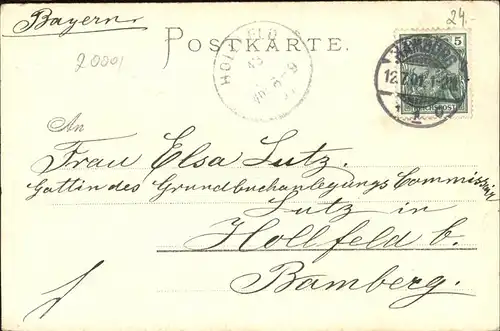 Bayern.
24.-
20001
POSTKARTE.
HOLLFELD
5
HAMBURG
12.7.01
REICHSPOST
An
Frau Elsa Lutz.
Gattin des Grundbuchanlegungs Commissär
Lutz in
Hollfeld b.
Bamberg.